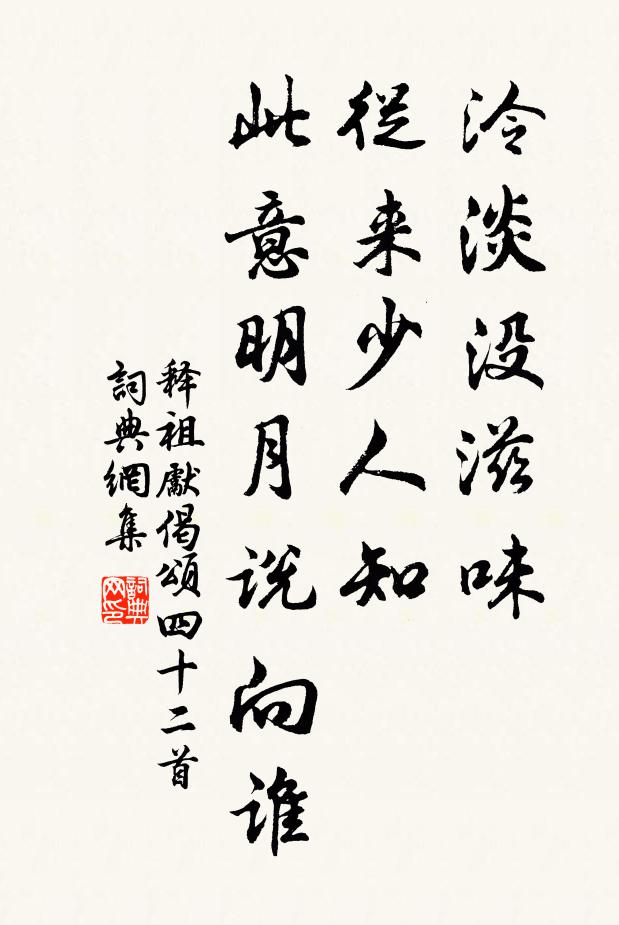 泠淡没滋味
従来少人知
此意明月说向谁
释祖獻偈頌四十二首
詞典網集
詞典网印